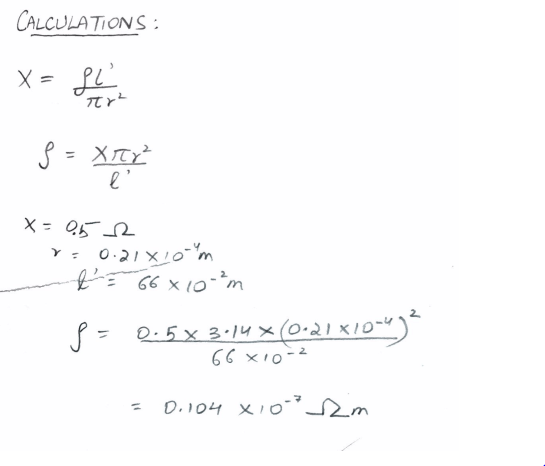 CALCULATIONS :
X = ρl' / πr²
ρ = Xπr² / l'
X = 0.5 Ω
r = 0.21 × 10⁻⁴m
l' = 66 × 10⁻²m
ρ = 0.5 × 3.14 × (0.21 × 10⁻⁴)² / 66 × 10⁻²
= 0.104 × 10⁻⁷ Ωm